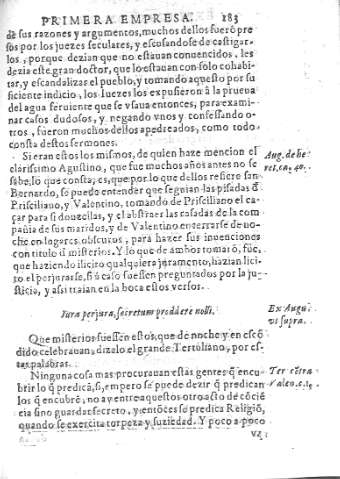 PRIMERA EMPRESA. 183
de sus razones y argumentos, muchos dellos fuerō pre
sos por los juezes seculares, y escusandose de castigar
los, porque dezian que no estauan conuencidos, les
dezia este gran doctor, que lo estauan con solo cohabi
tar, y escandalizar el pueblo, y tomando aquesto por su
ficiente indicio, los Iuezes los expusieron à la prueua
del agua feruiente que se vsaua entonces, para exami
nar casos dudosos, y negando vnos y confessando o-
tros, fueron muchos dellos apedreados, como todo
consta destos sermones.
Si eran estos los mismos, de quien haze mencion el
clarissimo Agustino, que fue muchos años antes no se
sabe, lo que consta, es, que por lo que dellos refiere san
Bernardo, se puede entender que seguian las pisadas d̄
Prisciliano, y Valentino, tomando de Prisciliano el ca
çar para si donzellas, y el abstraer las casadas de la com
pañia de sus maridos, y de Valentino encerrarse de no
che en lugares obscuros, para hazer sus inuenciones
con titulo d̄ misterios. Y lo que de ambos tomarō, fue,
que haziendo ilicito qualquiera juramento, hazian lici
to el perjurarse, si à caso fuessen preguntados por la ju-
sticia, y assi traian en la boca estos versos.
Aug. de he
res. ca. 40.
Iura perjura, secretum prodere noli.
Ex Augu
vi supra.
Que misterios fuessen estos, que de noche y en escō
dido celebrauan, dizelo el grande Tertuliano, por es-
tas palabras.
Ninguna cosa mas procurauan estas gentes q̄ encu-
brir lo q̄ predicā, si, empero se puede dezir q̄ predican
los q̄ encubrē, no ay entre aquestos otro acto de cōciē
cia sino guardar secreto, y entōces se predica Religiō,
quando se exercita torpeza y suziedad. Y poco a poco
Ter cōtra
Valen. c. 1.
va: